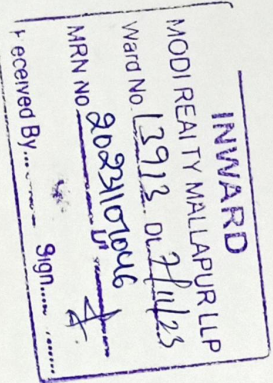 INWARD
MODI REALTY MALLAPUR LLP
Ward No. 13913 Dt. 7/11/23
MRN NO 20231107046
eceived By........ Sign...........